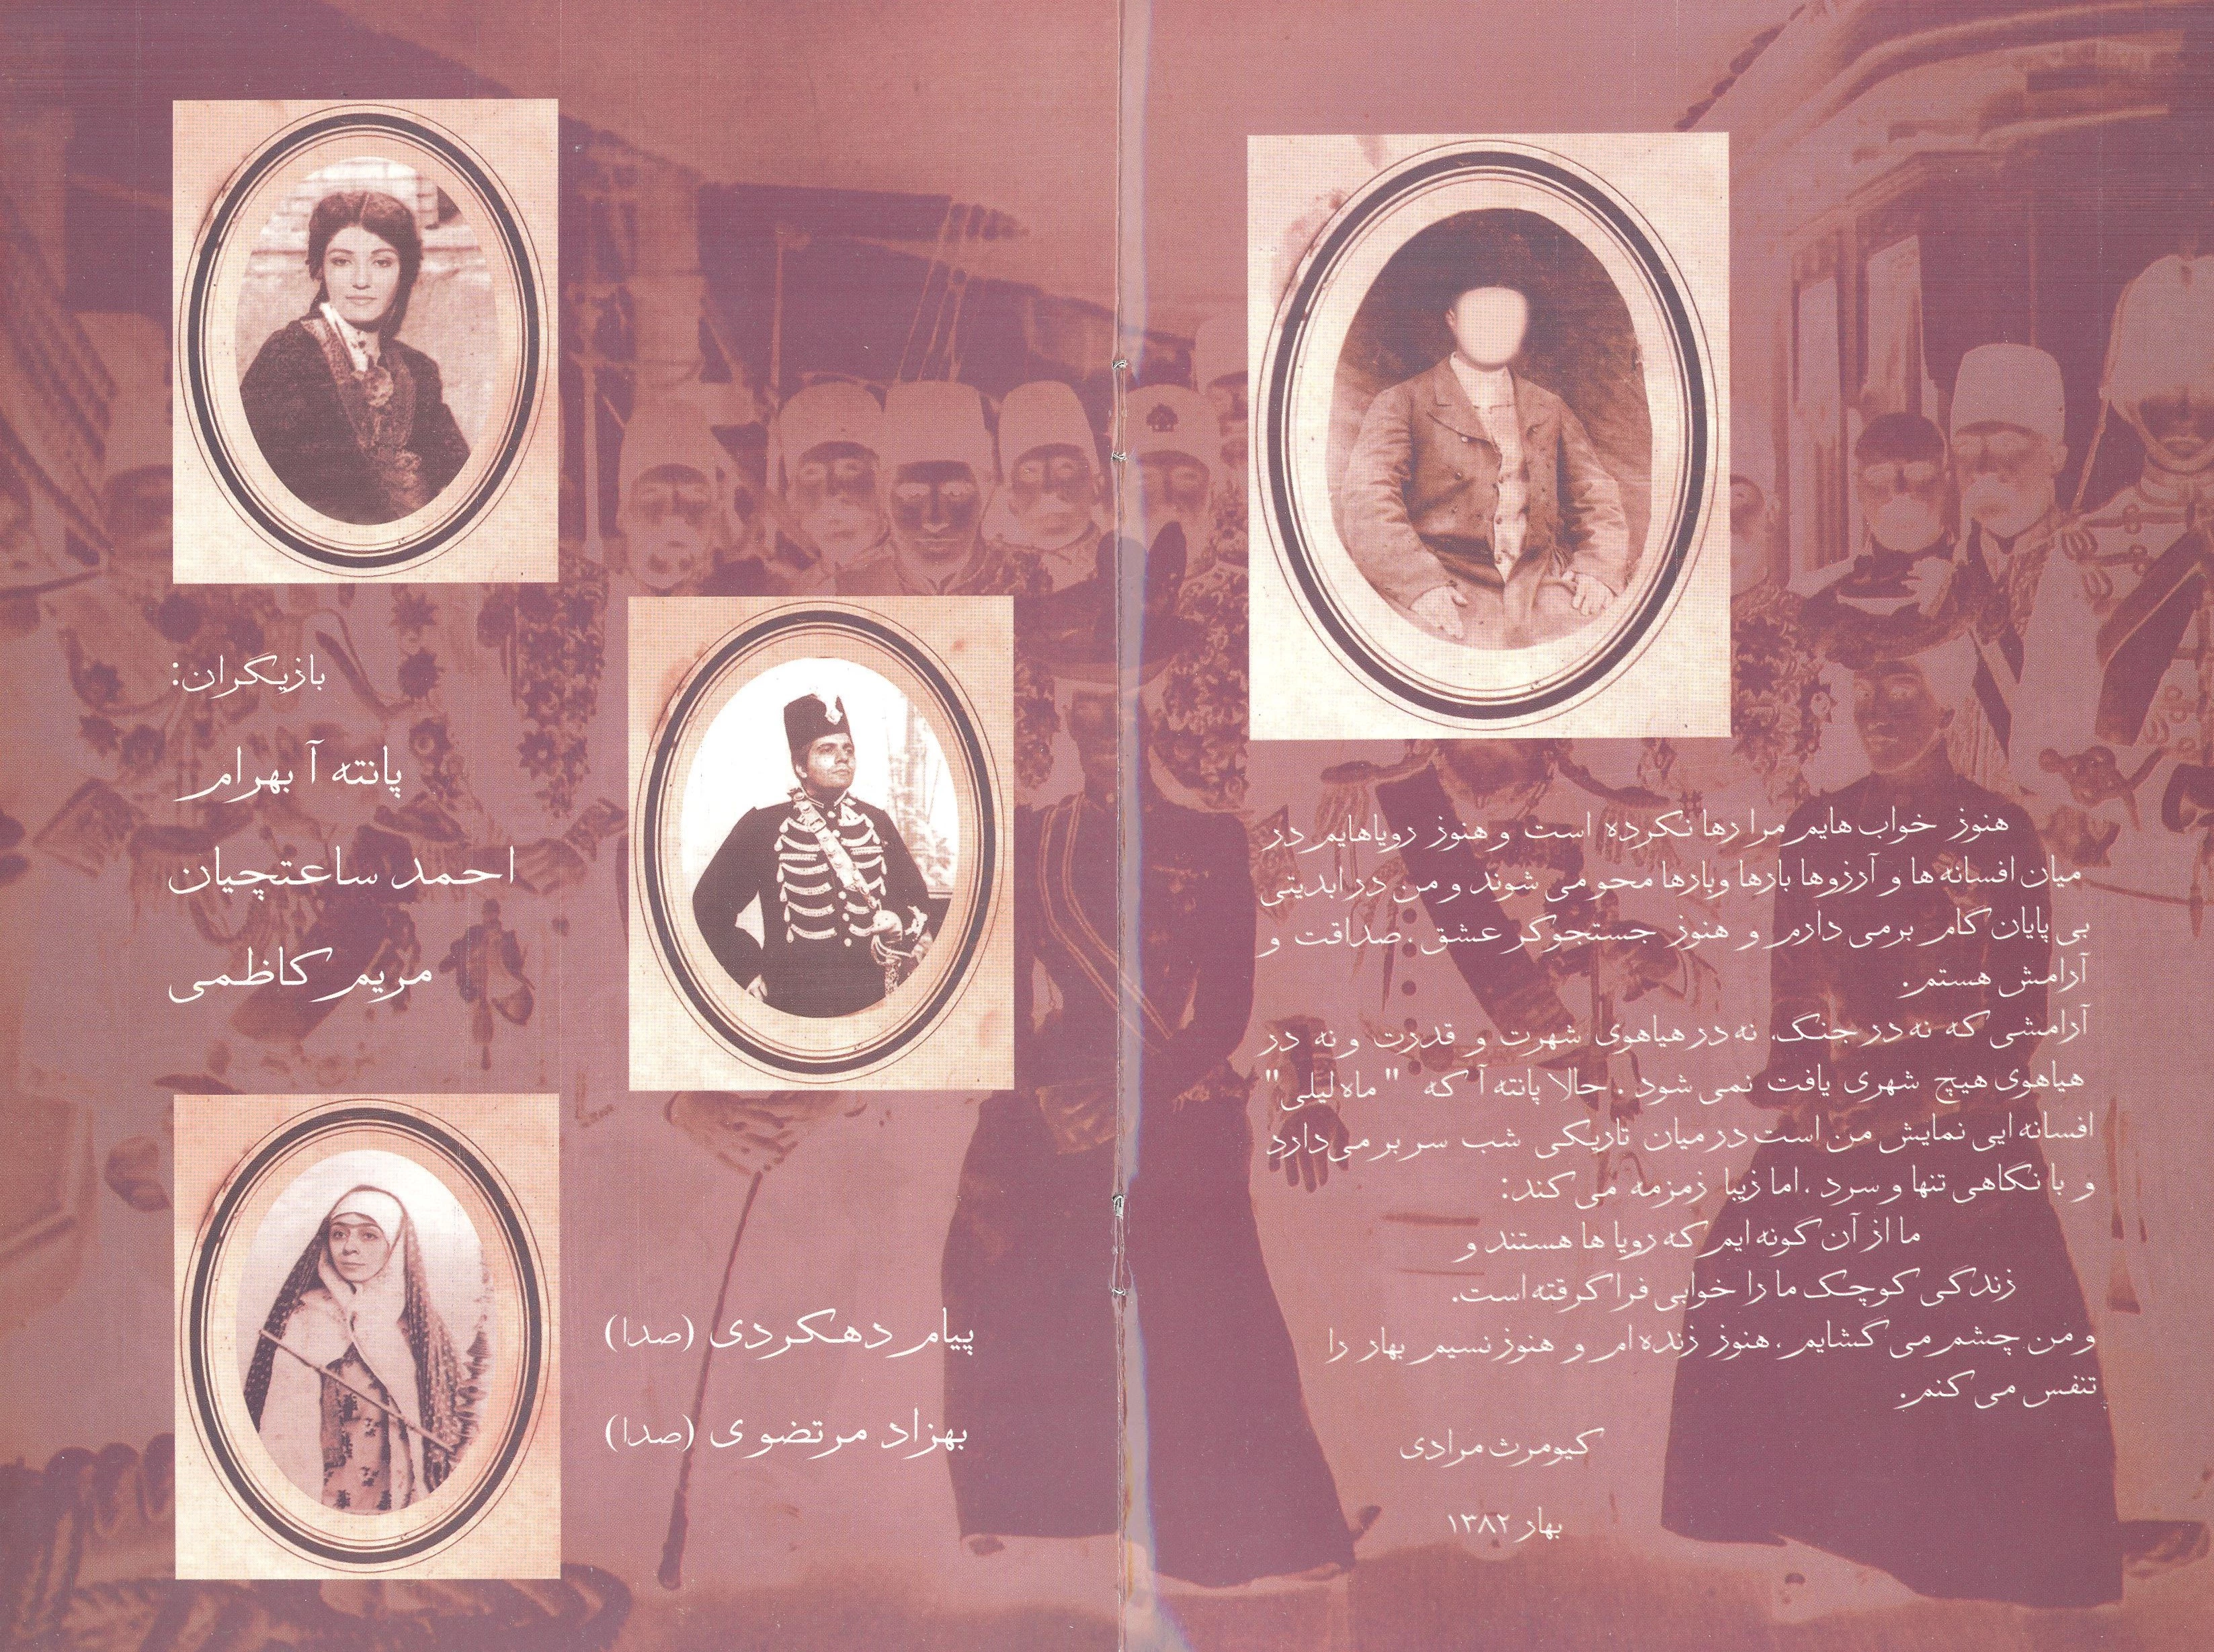 هنوز خواب هایم مرا رها نکرده است و هنوز رویاهایم در
میان افسانه ها و آرزوها بارها وبارها محو می شوند و من در ابدیتی
بی پایان گام برمی دارم و هنوز جستجوگر عشق ، صداقت و
آرامش هستم.
آرامشی که نه در جنگ، نه در هیاهوی شهرت و قدرت و نه در
هیاهوی هیچ شهری یافت نمی شود . حالا پانته آ که " ماه لیلی "
افسانه ایی نمایش من است در میان تاریکی شب سر بر می دارد
و با نگاهی تنها و سرد ، اما زیبا زمزمه می کند:
ما از آن گونه ایم که رویا ها هستند و
زندگی کوچک ما را خوابی فرا گرفته است.
و من چشم می گشایم ، هنوز زنده ام و هنوز نسیم بهار را
تنفس می کنم.
کیومرث مرادی
بهار ۱۳۸۲
بازیگران:
پانته آ بهرام
احمد ساعتچیان
مریم کاظمی
پیام دهکردی (صدا)
بهزاد مرتضوی (صدا)